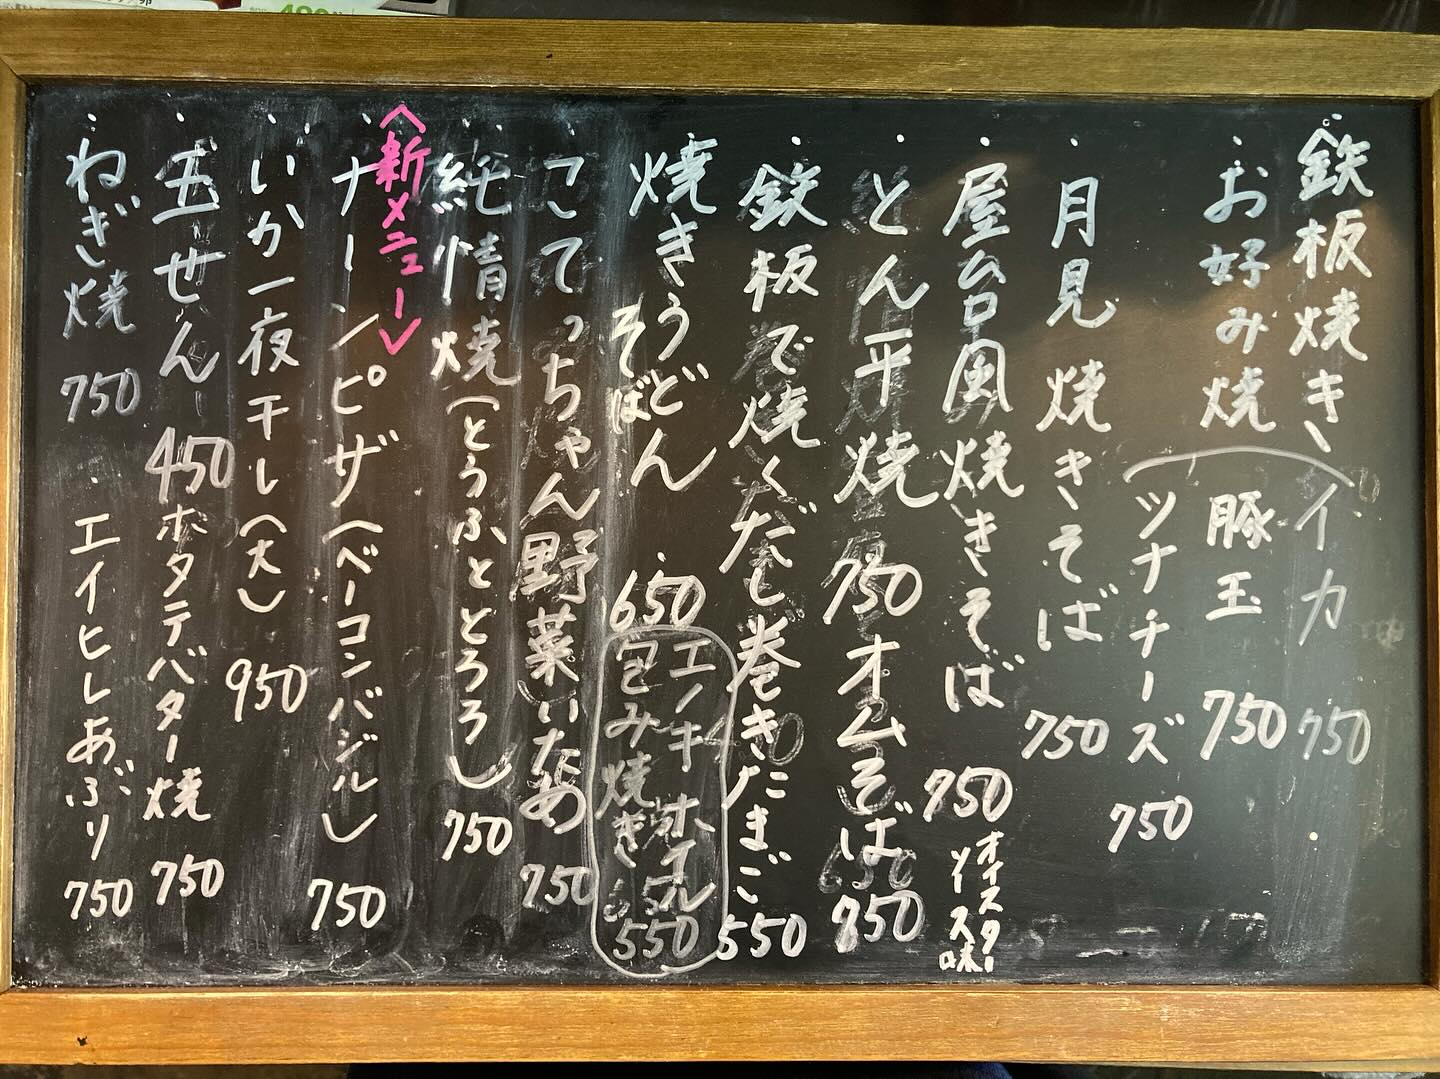 鉄板焼き、イカ 750
・お好み焼 豚玉 750
ツナチーズ 750
・月見焼きそば 750
・屋台風焼きそば 750 オイスターソース味
・とん平焼 750 オムそば 850
・鉄板で焼くだし巻きたまご 550
焼きうどん そば 650
エノキホイル包み焼き 550
・こてっちゃん野菜いため 750
・純情焼(とうふととろろ) 750
〈新メニュー〉
・ナーン/ピザ(ベーコンバジル) 750
・いか一夜干し(大) 950
・玉せん 450 ホタテバター焼 750
・ねぎ焼 750 ・エイヒレあぶり 750